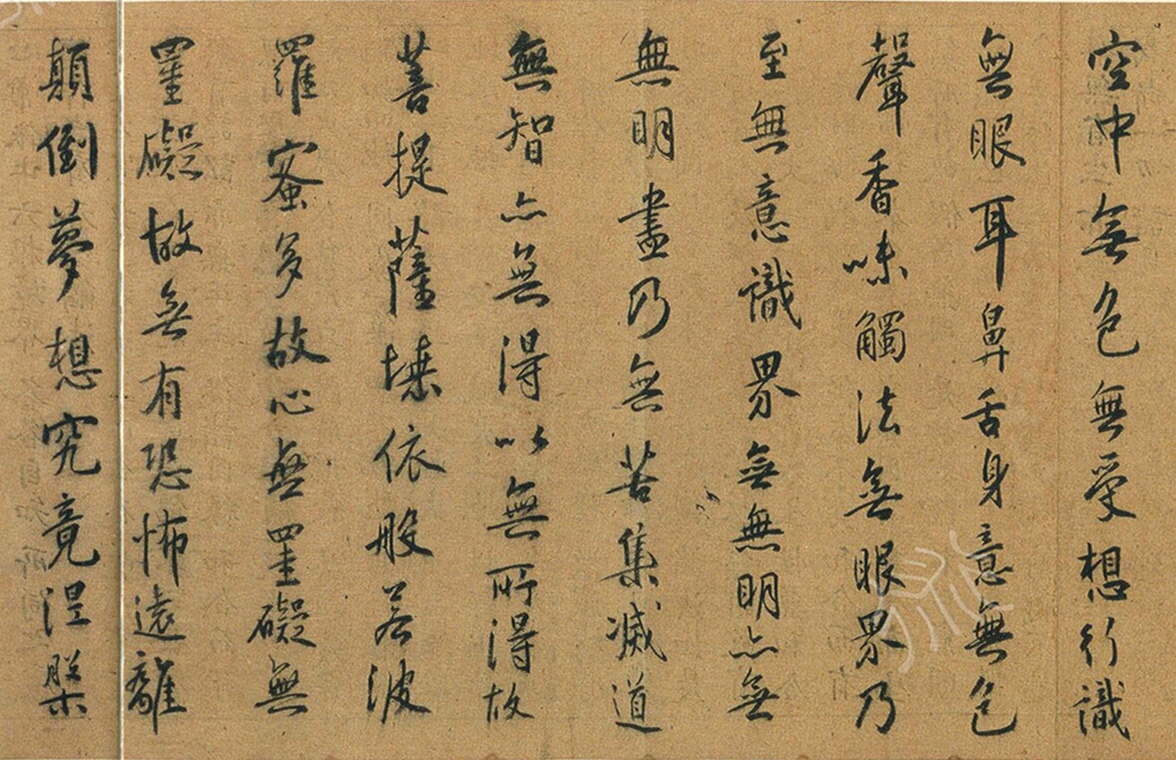 空中無色無受想行識
無眼耳鼻舌身意無色
聲香味觸法無眼界乃
至無意識界無無明亦無
無明盡乃無苦集滅道
無智亦無得以無所得故
菩提薩埵依般若波
羅蜜多故心無罣礙無
罣礙故無有恐怖遠離
顛倒夢想究竟涅槃